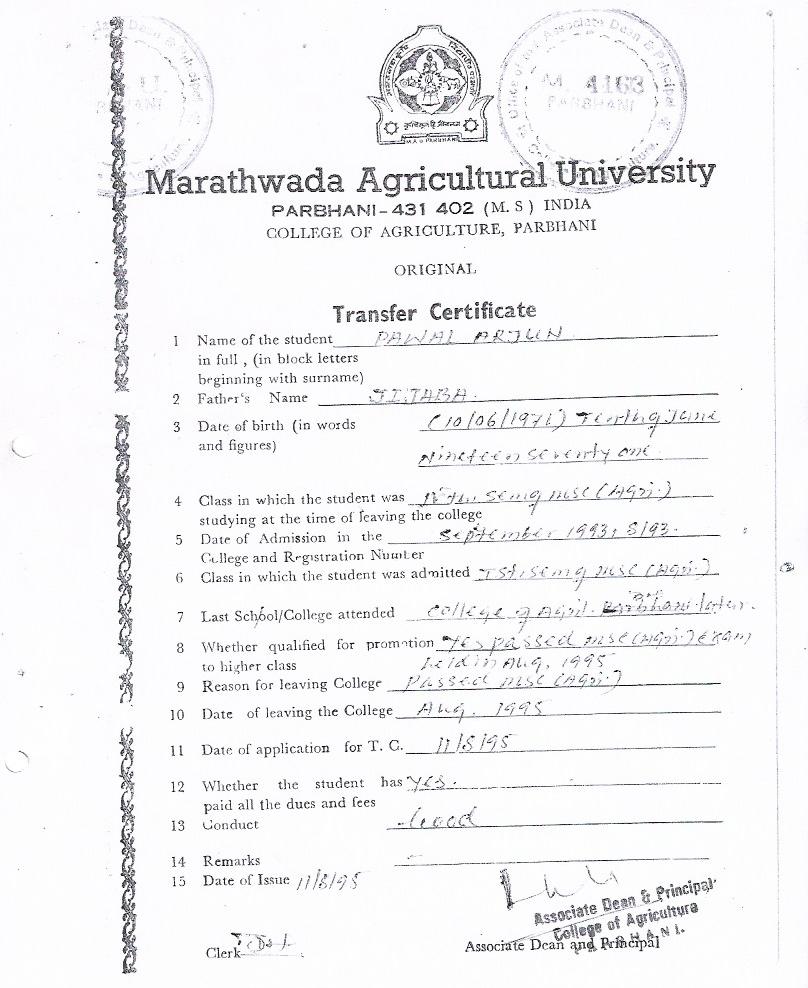 Office of the Associate Dean & Principal
M. 4163
PARBHANI
M A U PARBHANI
Marathwada Agricultural University
PARBHANI-431 402 (M. S) INDIA
COLLEGE OF AGRICULTURE, PARBHANI
ORIGINAL
Transfer Certificate
1 Name of the student PAWAL ARJUN
in full , (in block letters
beginning with surname)
2 Father's Name JIJABA.
3 Date of birth (in words (10/06/1971) June
and figures) Nineteen seventy one.
4 Class in which the student was Msc (Agri.)
studying at the time of leaving the college
5 Date of Admission in the September 1993,
College and Registration Number
6 Class in which the student was admitted Msc (Agri.)
7 Last School/College attended College of Agril.
8 Whether qualified for promotion Yes passed Msc (Agri.) exam
to higher class held in Aug, 1995
9 Reason for leaving College Passed Msc (Agri.)
10 Date of leaving the College Aug. 1995
11 Date of application for T. C. 11/8/95
12 Whether the student has Yes.
paid all the dues and fees
13 Conduct Good
14 Remarks -
15 Date of Issue 11/8/95
Associate Dean & Principal
College of Agricultura
PARBHANI.
Clerk Associate Dean and Principal